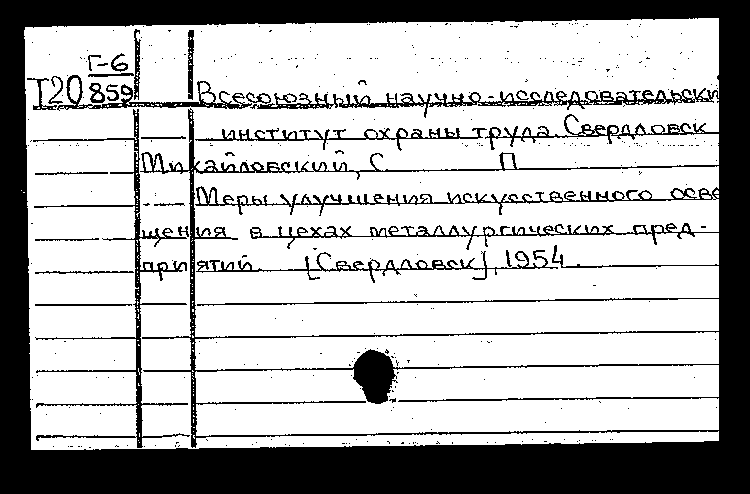 Г-6
Т20 859 Всесоюзный научно-исследовательски
институт охраны труда. Свердловск
Михайловский, С. П
Меры улучшения искусственного осве
щения в цехах металлургических пред-
приятий. [Свердловск], 1954.